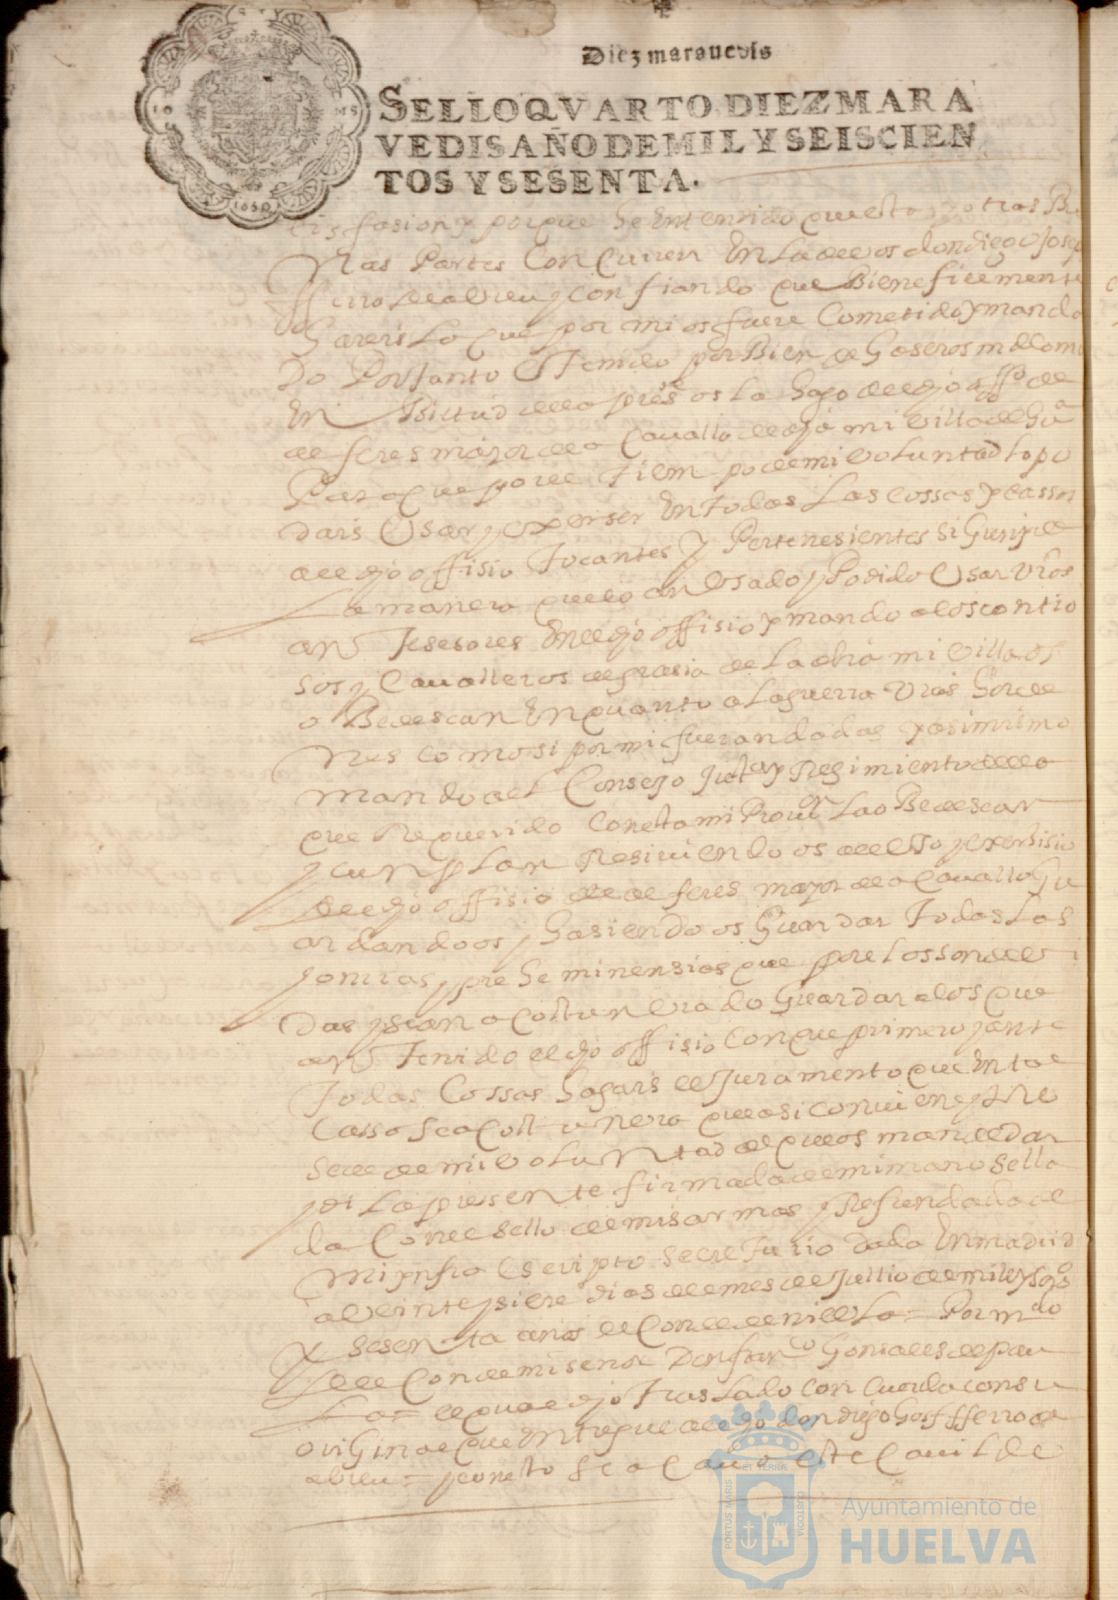 Diez maravedis
SELLO QVARTO DIEZ MARA
VEDIS AÑO DE MIL Y SEISCIEN
TOS Y SESENTA.
tisfasion y porque se entendido que estas y otras Bu
nas Partes Concurren En la de vos don diego Josep
fferro de abreu y confiando que Bien e fielmente
Hareis Lo que por mi os fuere Cometido y manda
do Por tanto E tenido por Bien de Haseros md como
En Birtud de la presste os la hago del dho offo de
alferes mayor de a Cavallo de dha mi Villa de
Para que por el tiempo de mi voluntad lo po
dais Usar y exerser En todas Las cossas y cassos
al dho offisio tocantes y Pertenesientes Sigun y de
La manera que lo an Usado y Podido Usar vros
antesesores En el dho offisio y mando a los contio
sos y Cavalleros de grasia de La dha mi Villa os
oBedescan En quanto a La guerra vras Horde
nes como si por mi fueran dadas y asimismo
mando al Consejo Justa y Regimiento de ella
que Requerido con esta mi Provon La oBedescan
y cunplan Resiviendo os al Usso y exersisio
del dho offisio de alferes mayor de a Cavallo Gu
ardandoos y Hasiendo os Guardar Todas Las
honrras y preheminensias que por el Losson devi
das y sean acostunbrado Guardar a los que
an Tenido el dho offisio Con que primero y ante
Todas Cossas Hagais el Juramento que En tal
Casso se acostunbra que asi conviene y
de mi Voluntad de que os mande dar
y di La presente firmada de mi mano Sella
da Con el sello de mis armas y Refrendada de
Mi ynfra Escripto Secretario dada En madrid
a Veinte y siete dias del mes de Jullio de mil y Sos
y sesenta anos el Conde de niebla = Por mdo
del Conde mi señor Don franco Gonsales de
La = el qual dho Traslado con Cuerda con su
oriGinal que Entregue al dho don diego Josf fferro de
abreu = y con esto se acavo este Cavildo
PORTUS MARIS
ET TERRÆ
CUSTODIA
Ayuntamiento de
HUELVA